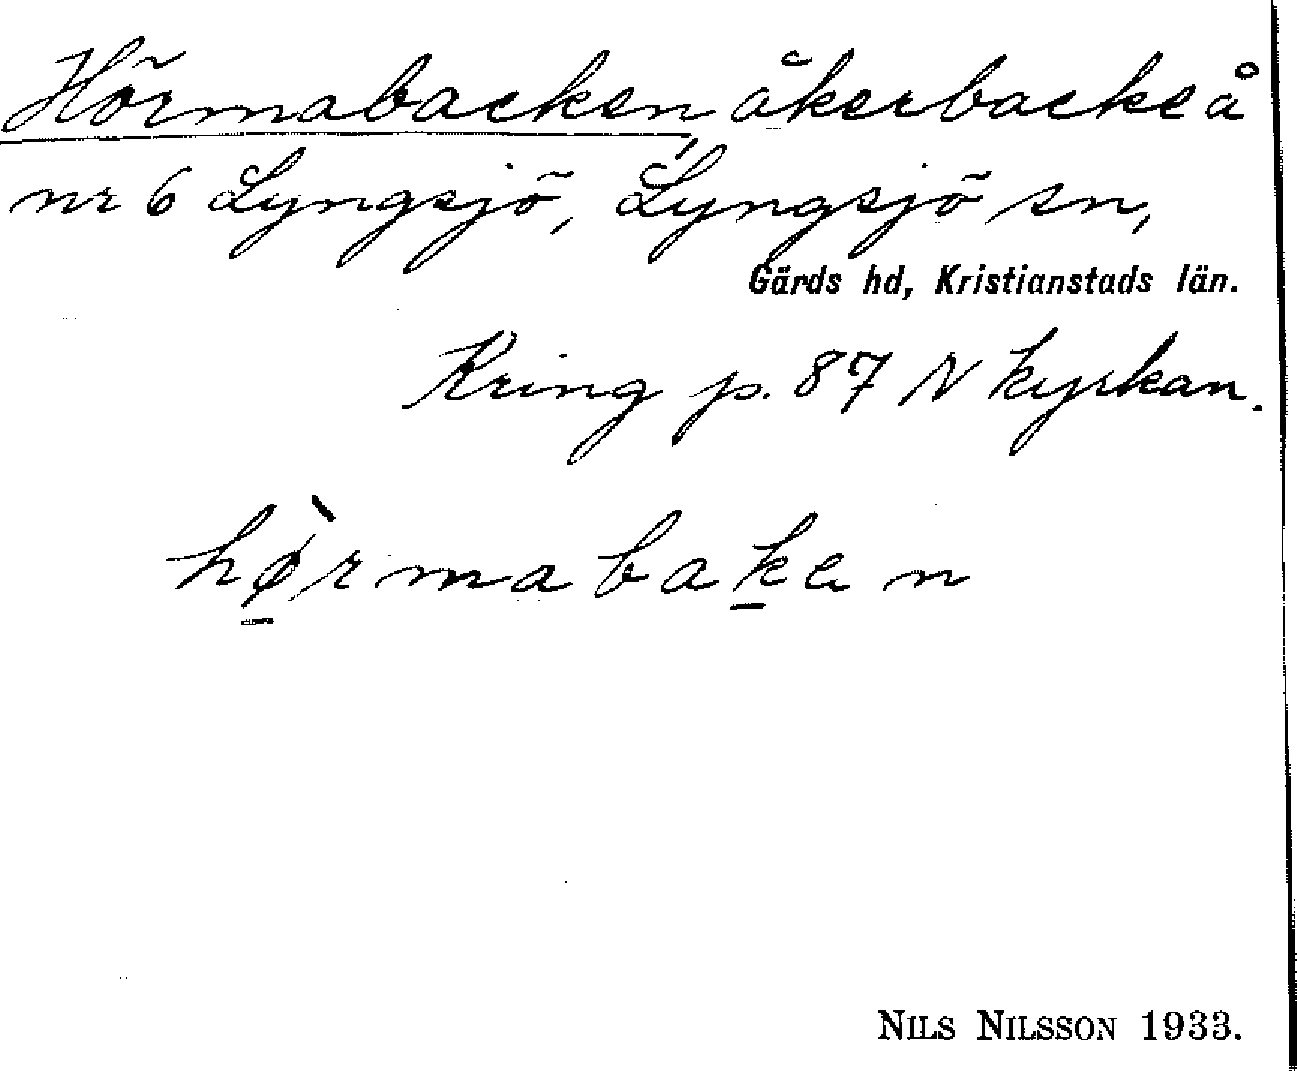 Hörmabacken, åkerbacke å
nr 6 Lyngsjö, Lyngsjö sn,
Gärds hd, Kristianstads län.
Kring p. 87 N kyrkan.
hø̀rmabaken
NILS NILSSON 1933.